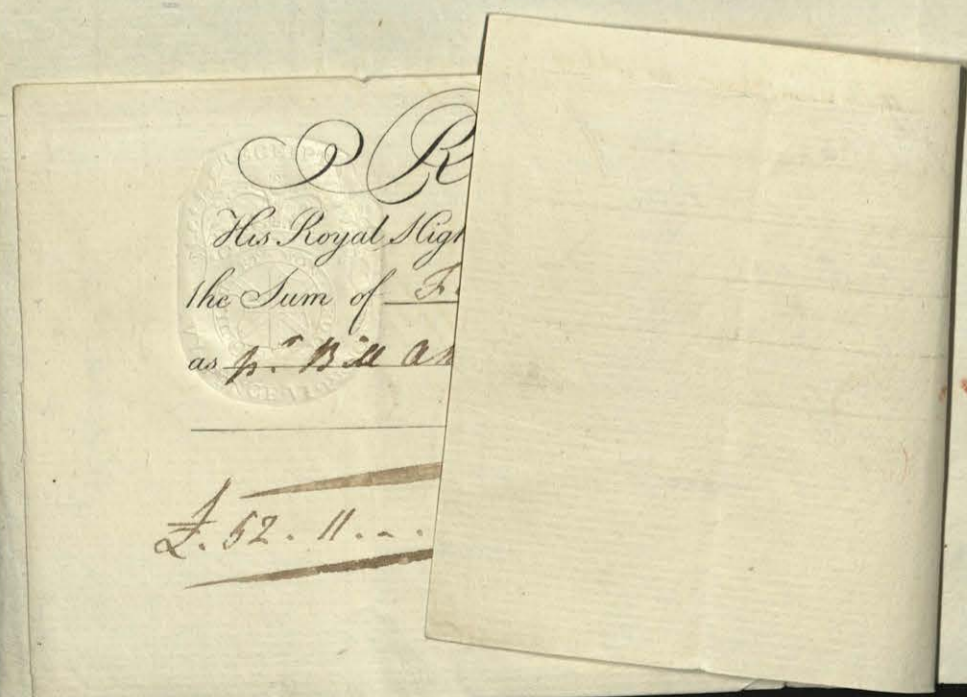 R
His Royal High
the Sum of F
as pr Bill an
£. 52. 11. - .